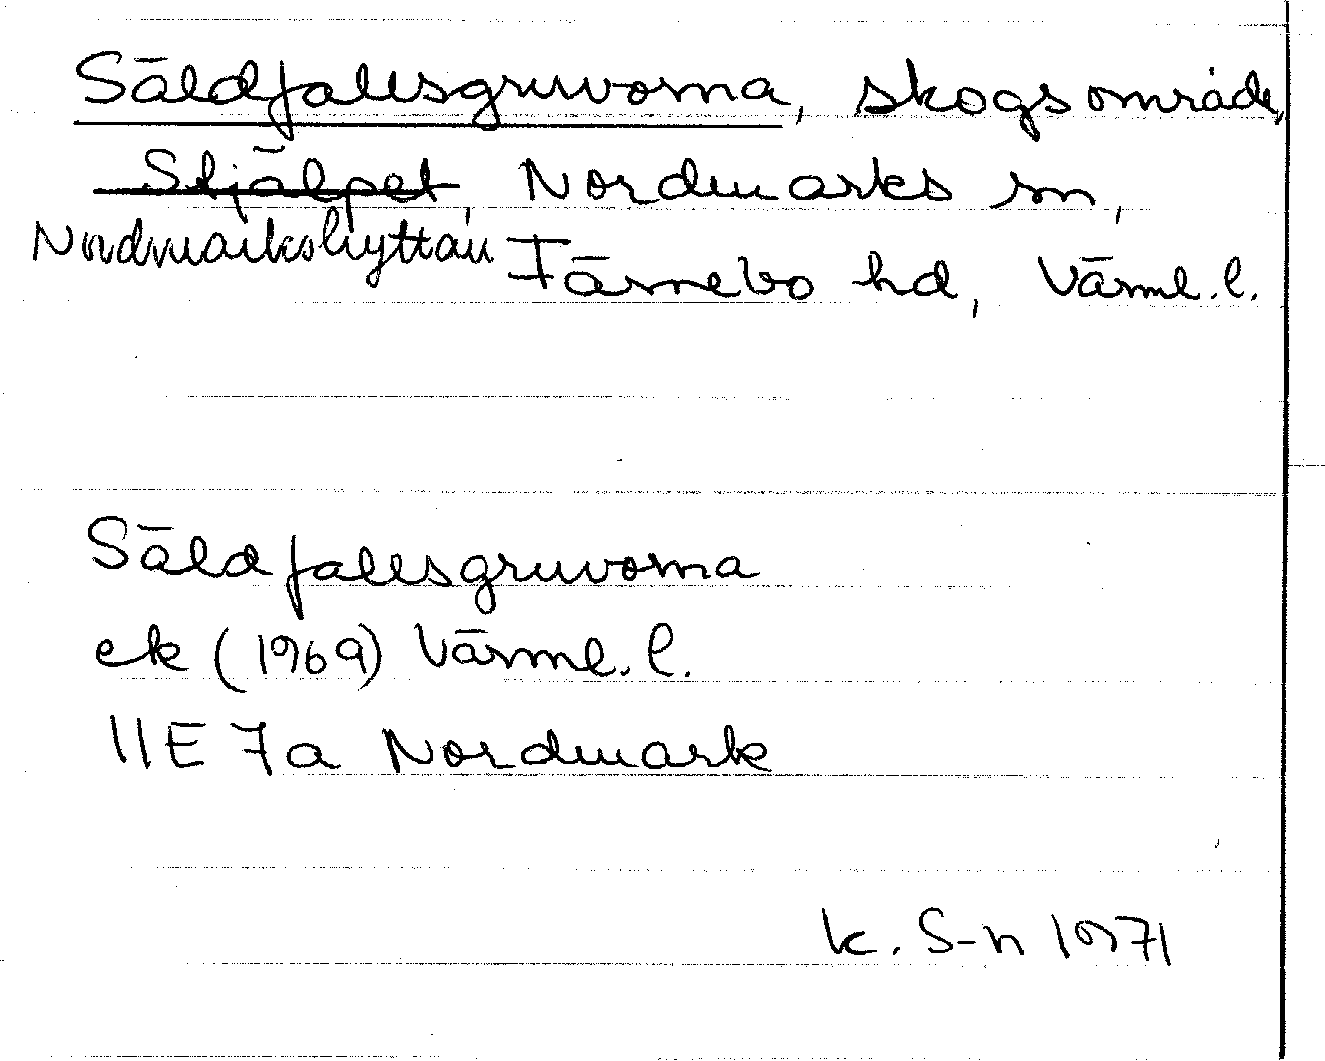 Säldfallsgruvorna, skogsområde,
Stjälpet, Nordmarks sn,
Nordmarkshyttan Färnebo hd, Värml. l.
Säldfallsgruvorna
ek (1969) Värml. l.
11E 7a Nordmark
k. S-n 1971